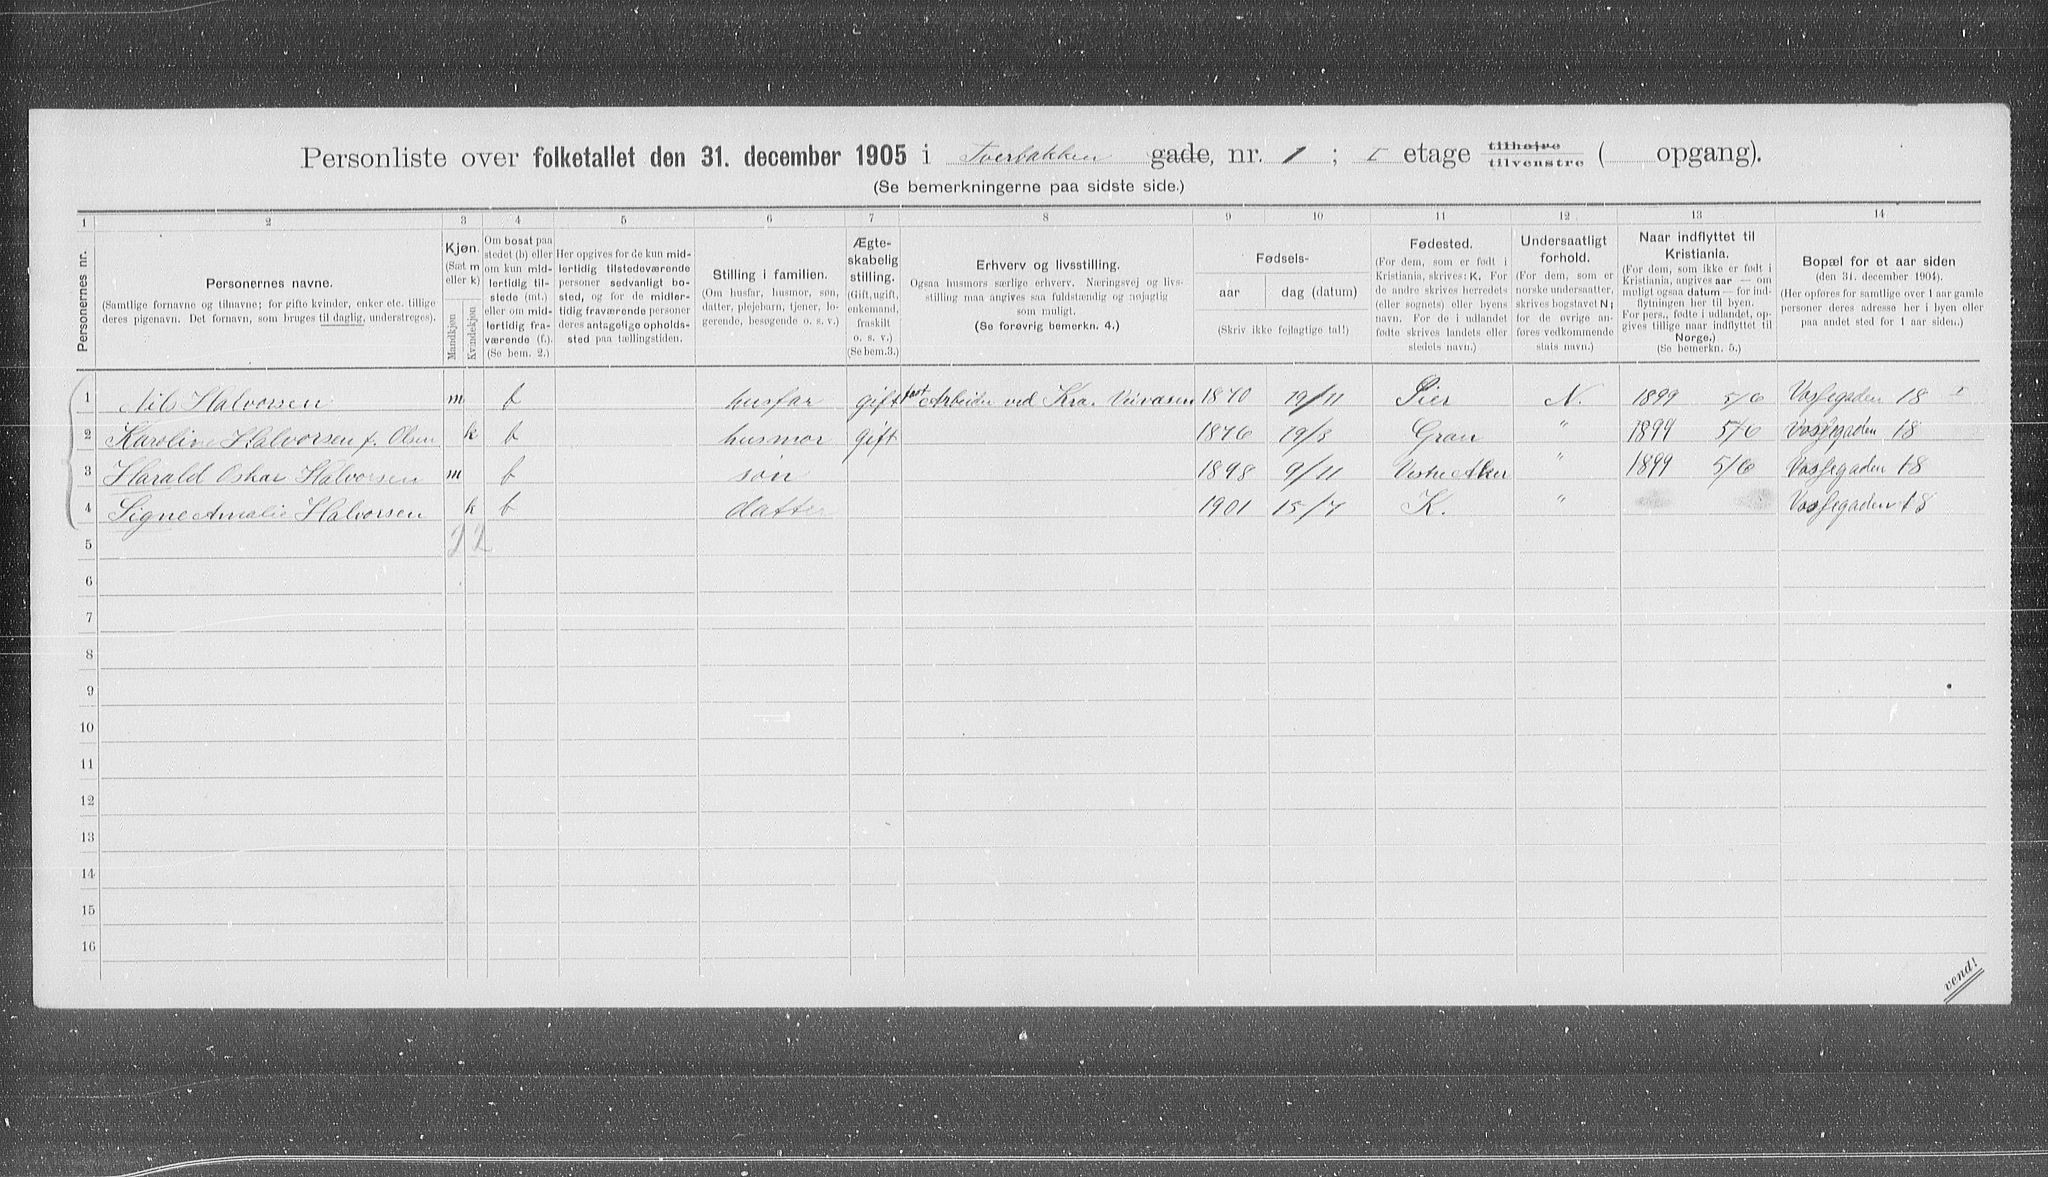 Personliste over folketallet den 31. december 1905 i Tverbakken gade, nr. 1 ; I etage tilhøjre tilvenstre ( opgang).
(Se bemerkningerne paa sidste side.)
1 2 3 4 5 6 7 8 9 10 11 12 13 14
Personernes nr.
Personernes navne.
(Samtlige fornavne og tilnavne; for gifte kvinder, enker etc. tillige
deres pigenavn. Det fornavn, som bruges til daglig, understreges).
Kjøn.
(Sæt m
eller k)
Mandkjøn
Kvindekjøn
Om bosat paa
stedet (b) eller
om kun mid-
lertidig til-
stede (mt.)
eller om mid-
lertidig fra-
værende (f.).
(Se bem. 2.)
Her opgives for de kun mid-
lertidig tilstedeværende
personer sedvanligt bo-
sted, og for de midler-
tidig fraværende personer
deres antagelige opholds-
sted paa tællingstiden.
Stilling i familien.
(Om husfar, husmor, søn,
datter, plejebarn, tjener, lo-
gerende, besøgende o. s. v.)
Ægte-
skabelig
stilling.
(Gift, ugift,
enkemand,
fraskilt
o. s. v.)
(Se bem.3.)
Erhverv og livsstilling.
Ogsaa husmors særlige erhverv. Næringsvej og livs-
stilling maa angives saa fuldstændig og nøjagtig
som muligt.
(Se forøvrig bemerkn. 4.)
Fødsels-
aar dag (datum)
(Skriv ikke fejlagtige tal!)
Fødested.
(For dem, som er født i
Kristiania, skrives: K. For
de andre skrives herredets
(eller sognets) eller byens
navn. For de i udlandet
fødte skrives landets eller
stedets navn.)
Undersaatligt
forhold.
(For dem, som er
norske undersaatter,
skrives bogstavet N;
for de øvrige an-
føres vedkommende
stats navn.)
Naar indflyttet til
Kristiania.
(For dem, som ikke er født i
Kristiania, angives aar — om
muligt ogsaa datum — for ind-
flytningen her til byen.
For pers., fødte i udlandet, op-
gives tillige naar indflyttet til
Norge.)
(Se bemerkn. 5.)
Bopæl for et aar siden
(den 31. december 1904).
(Her opføres for samtlige over 1 aar gamle
personer deres adresse her i byen eller
paa andet sted for 1 aar siden.)
1 Nils Halvorsen m b husfar gift fast Arbeider ved Kra. Veivæsen 1870 19/11 Lier N. 1899 5/6 Vossegaden 18 I
2 Karoline Halvorsen f. Olsen k b husmor gift 1876 19/3 Gran " 1899 5/6 Vossegaden 18
3 Harald Oskar Halvorsen m b søn 1898 9/11 Vestre Aker " 1899 5/6 Vossegaden 18
4 Signe Amalie Halvorsen k b datter 1901 15/7 K. " Vossegaden 18
5 2 2
6
7
8
9
10
11
12
13
14
15
16
vend!